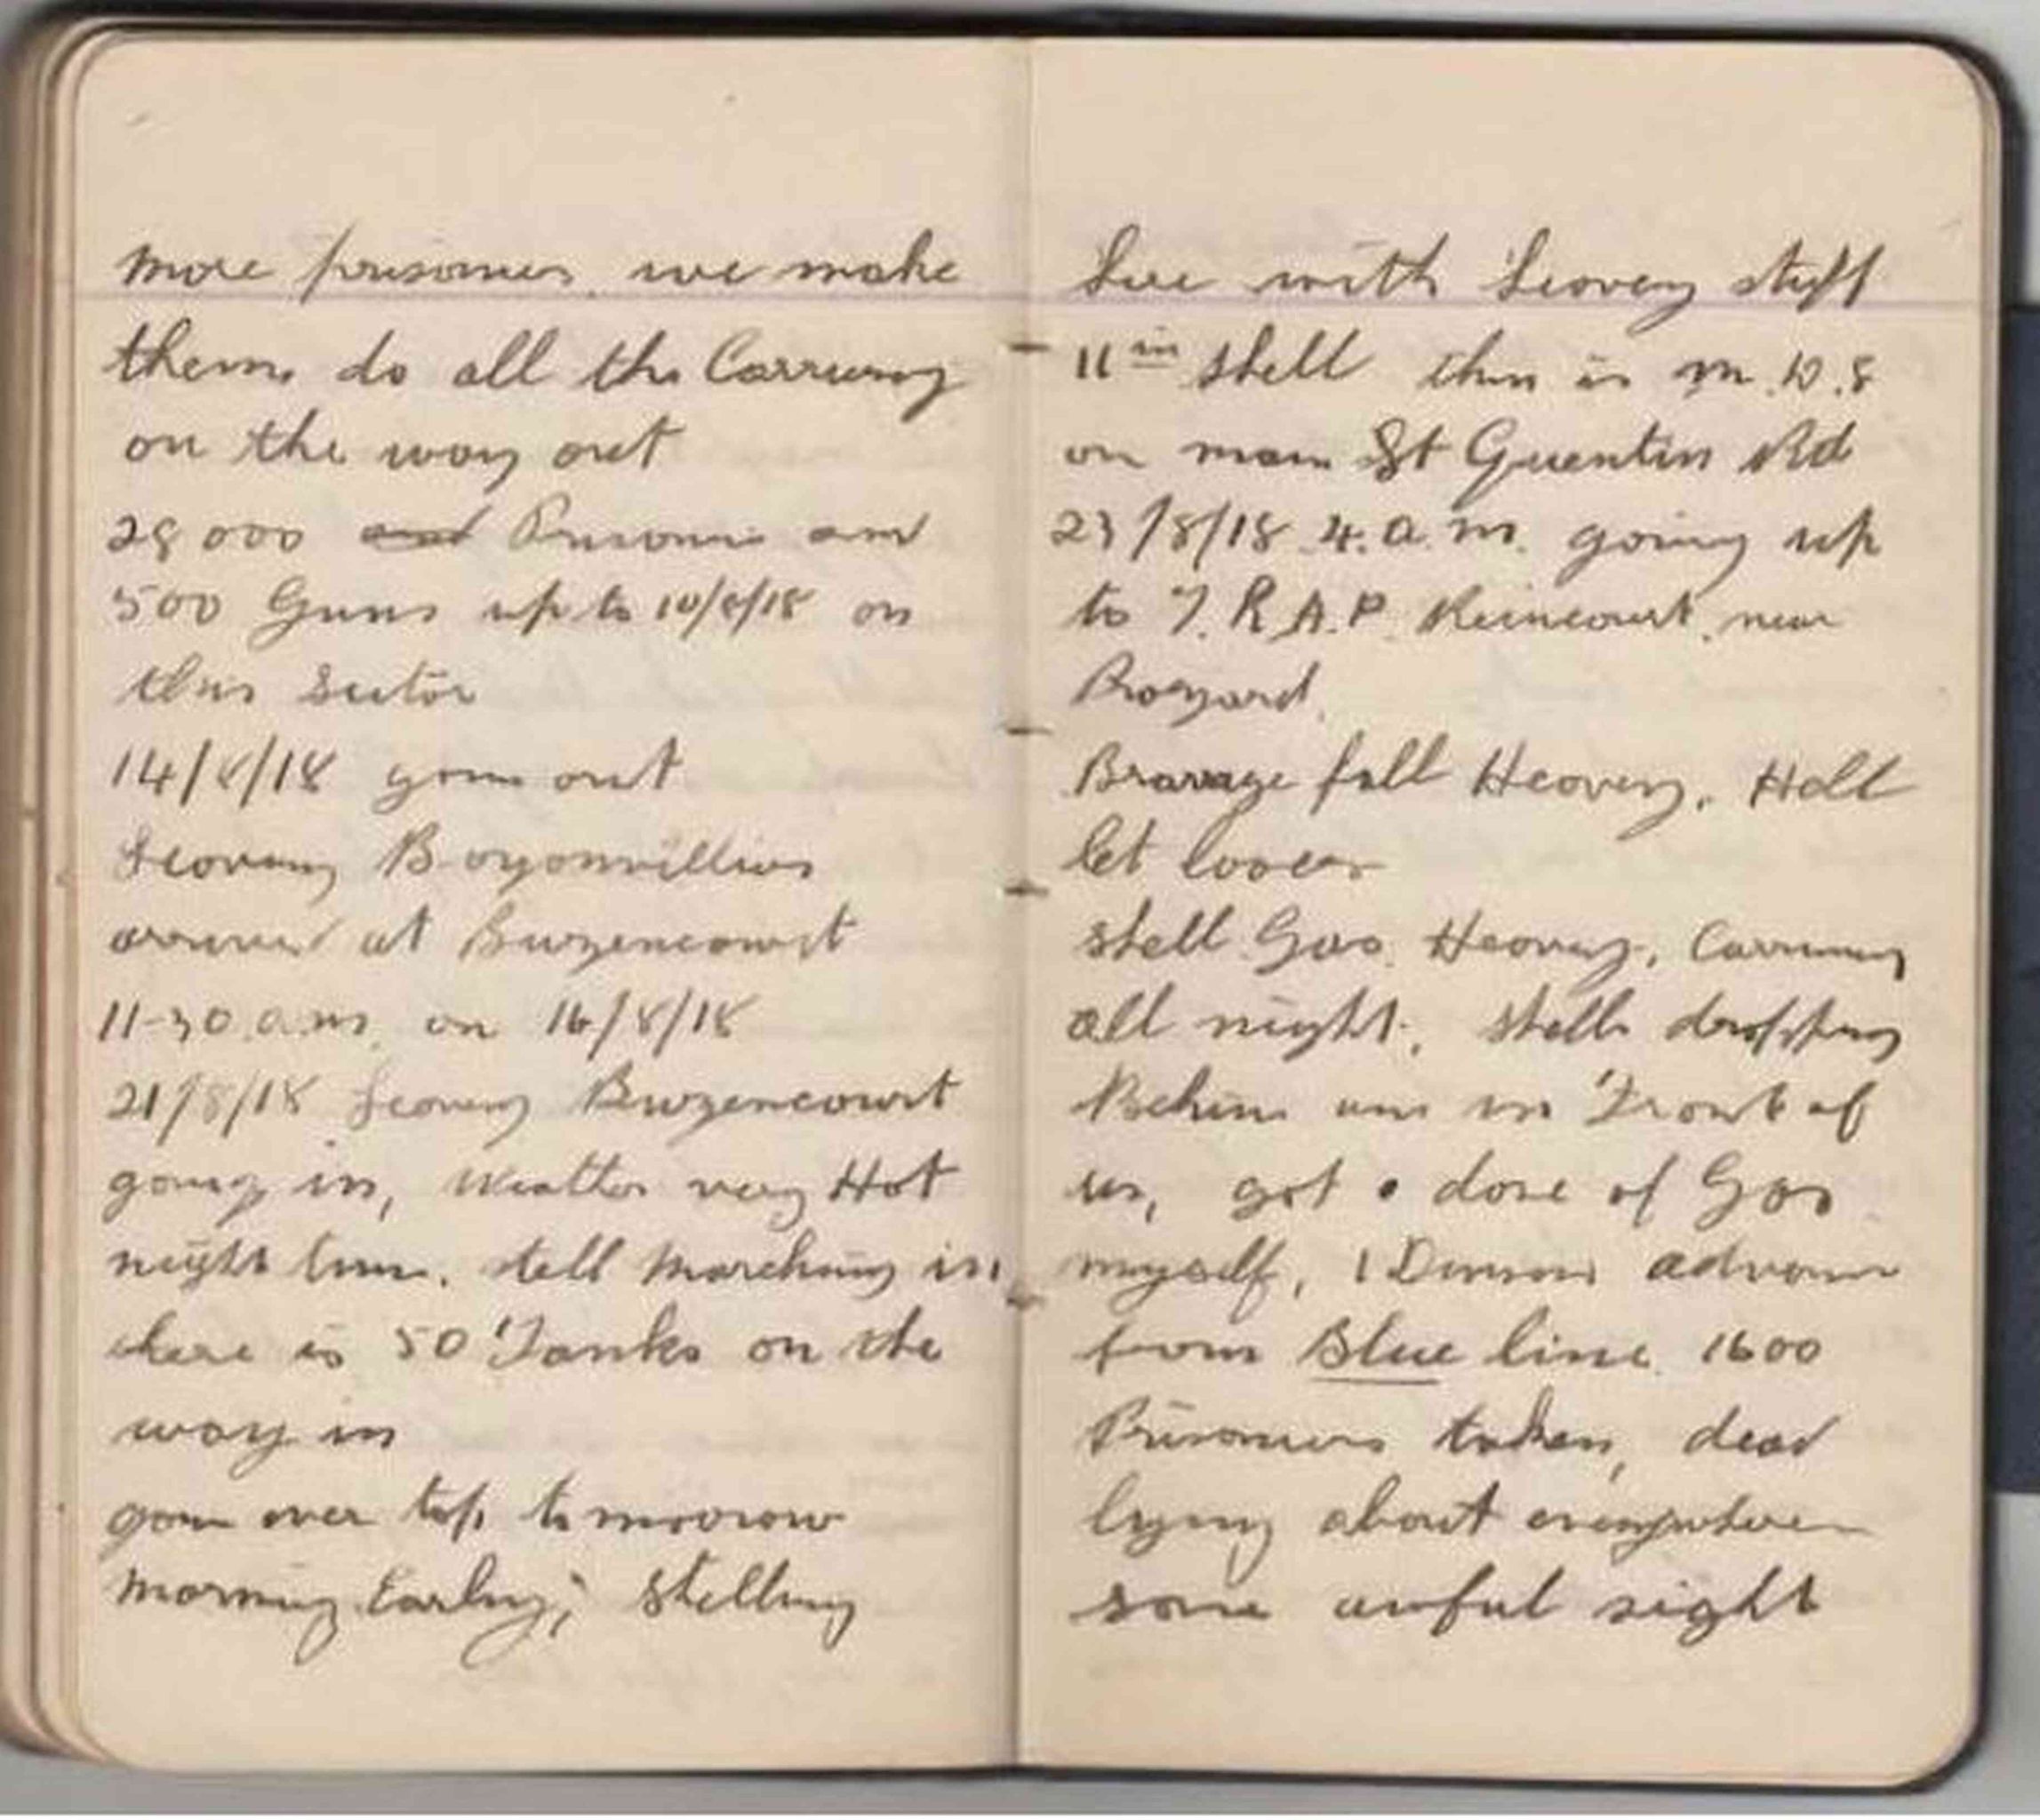 more prisoners we make
them do all the Carrying
on the way out
28000 and Prisoners and
500 Guns up to 10/8/18 on
this sector
14/8/18 going out
Leaving Bayonvillers
arrived at Buzencourt
11-30 a.m. on 16/8/18
21/8/18 Leaving Buzencourt
going in, Weather very Hot
night time. tell marching in,
there is 50 Tanks on the
way in
going over top tomorrow
morning Early; Shelling
with Heavy stuff
11 in shell this is M.D.S
on main St Quentin Rd
23/8/18 4.a.m. going up
to R.A.P. Reincourt. near
Proyard.
Bravage fall Heavey, Hell
let loose
shell Gas Heavey, Carrying
all night, shells dropping
Behind and in Front of
us, got a dose of Gas
myself, 1 Division advance
from Blue line 1600
Prisoners taken, dead
lying about everywhere
some awful sight